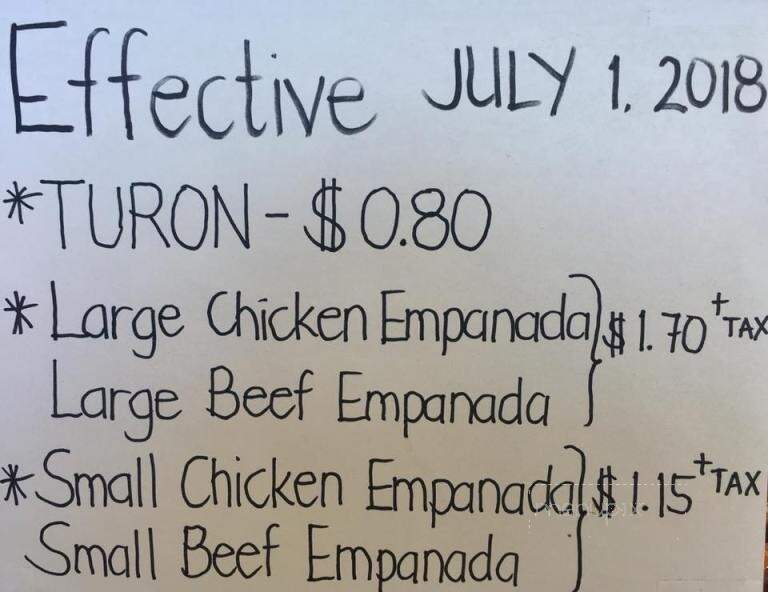 Effective JULY 1, 2018
*TURON - $0.80
* Large Chicken Empanada } $1.70 + TAX
Large Beef Empanada
* Small Chicken Empanada } $1.15 + TAX
Small Beef Empanada